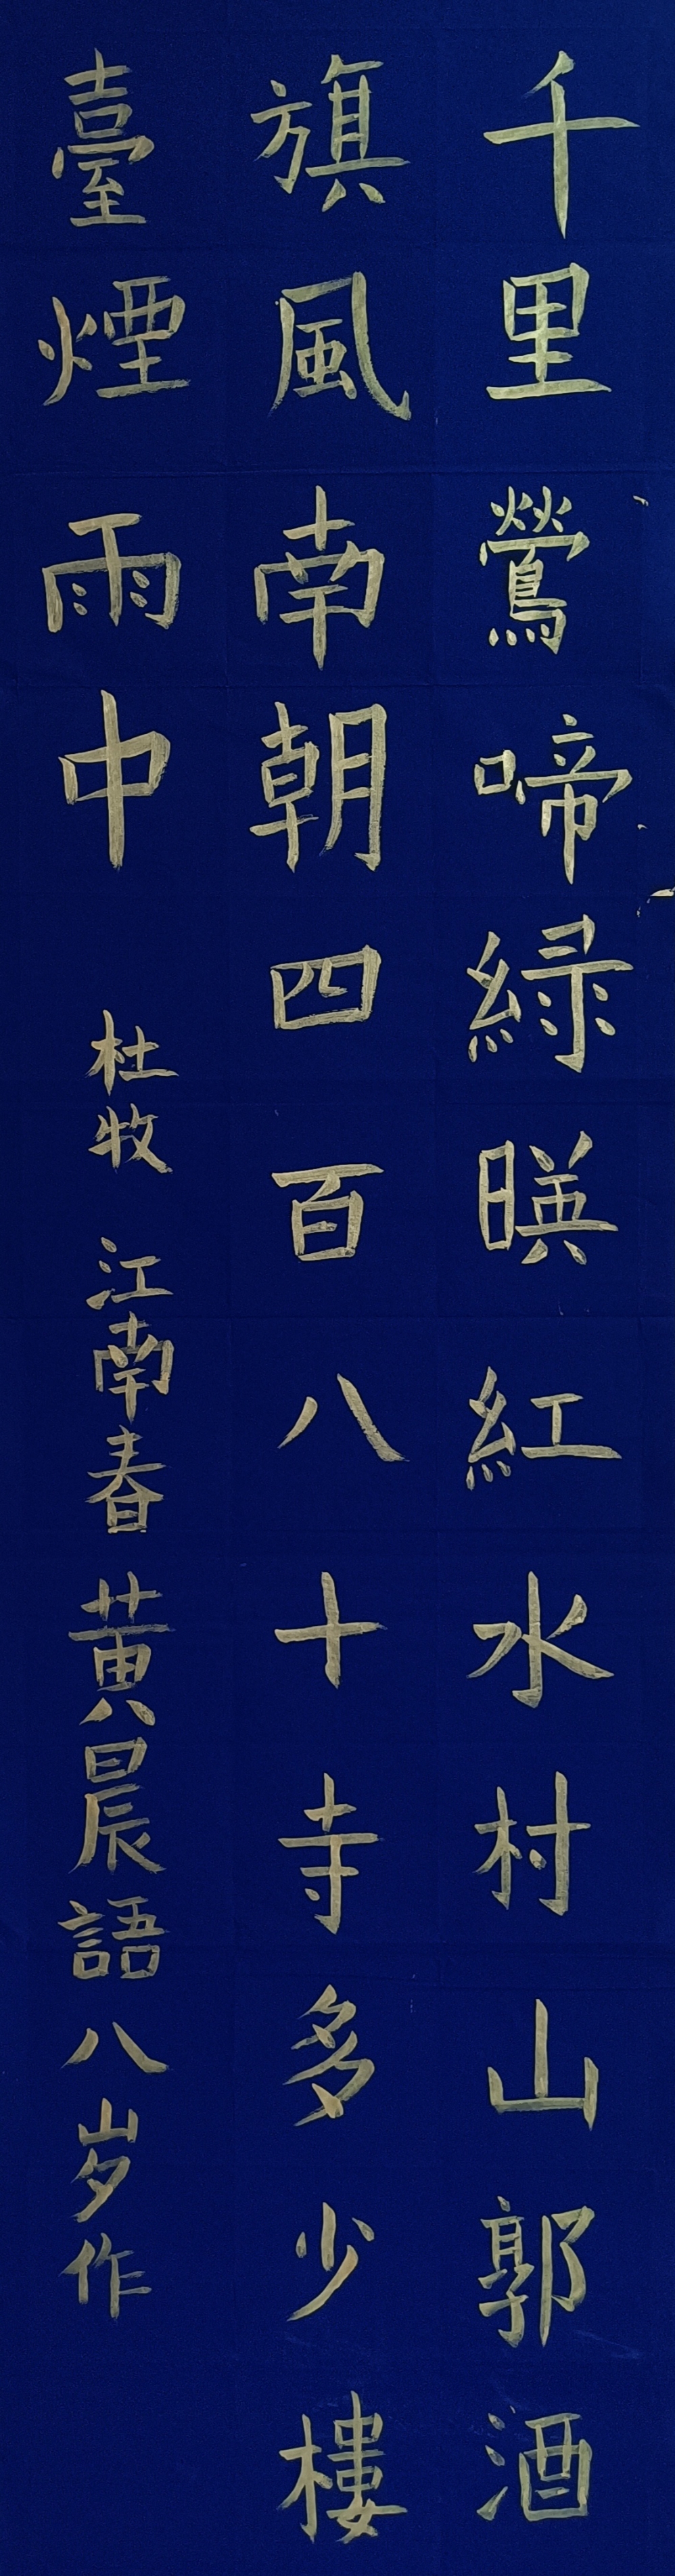 千里鶯啼緑暎紅水村山郭酒
旗風南朝四百八十寺多少樓
臺煙雨中 杜牧 江南春 黄晨語八岁作